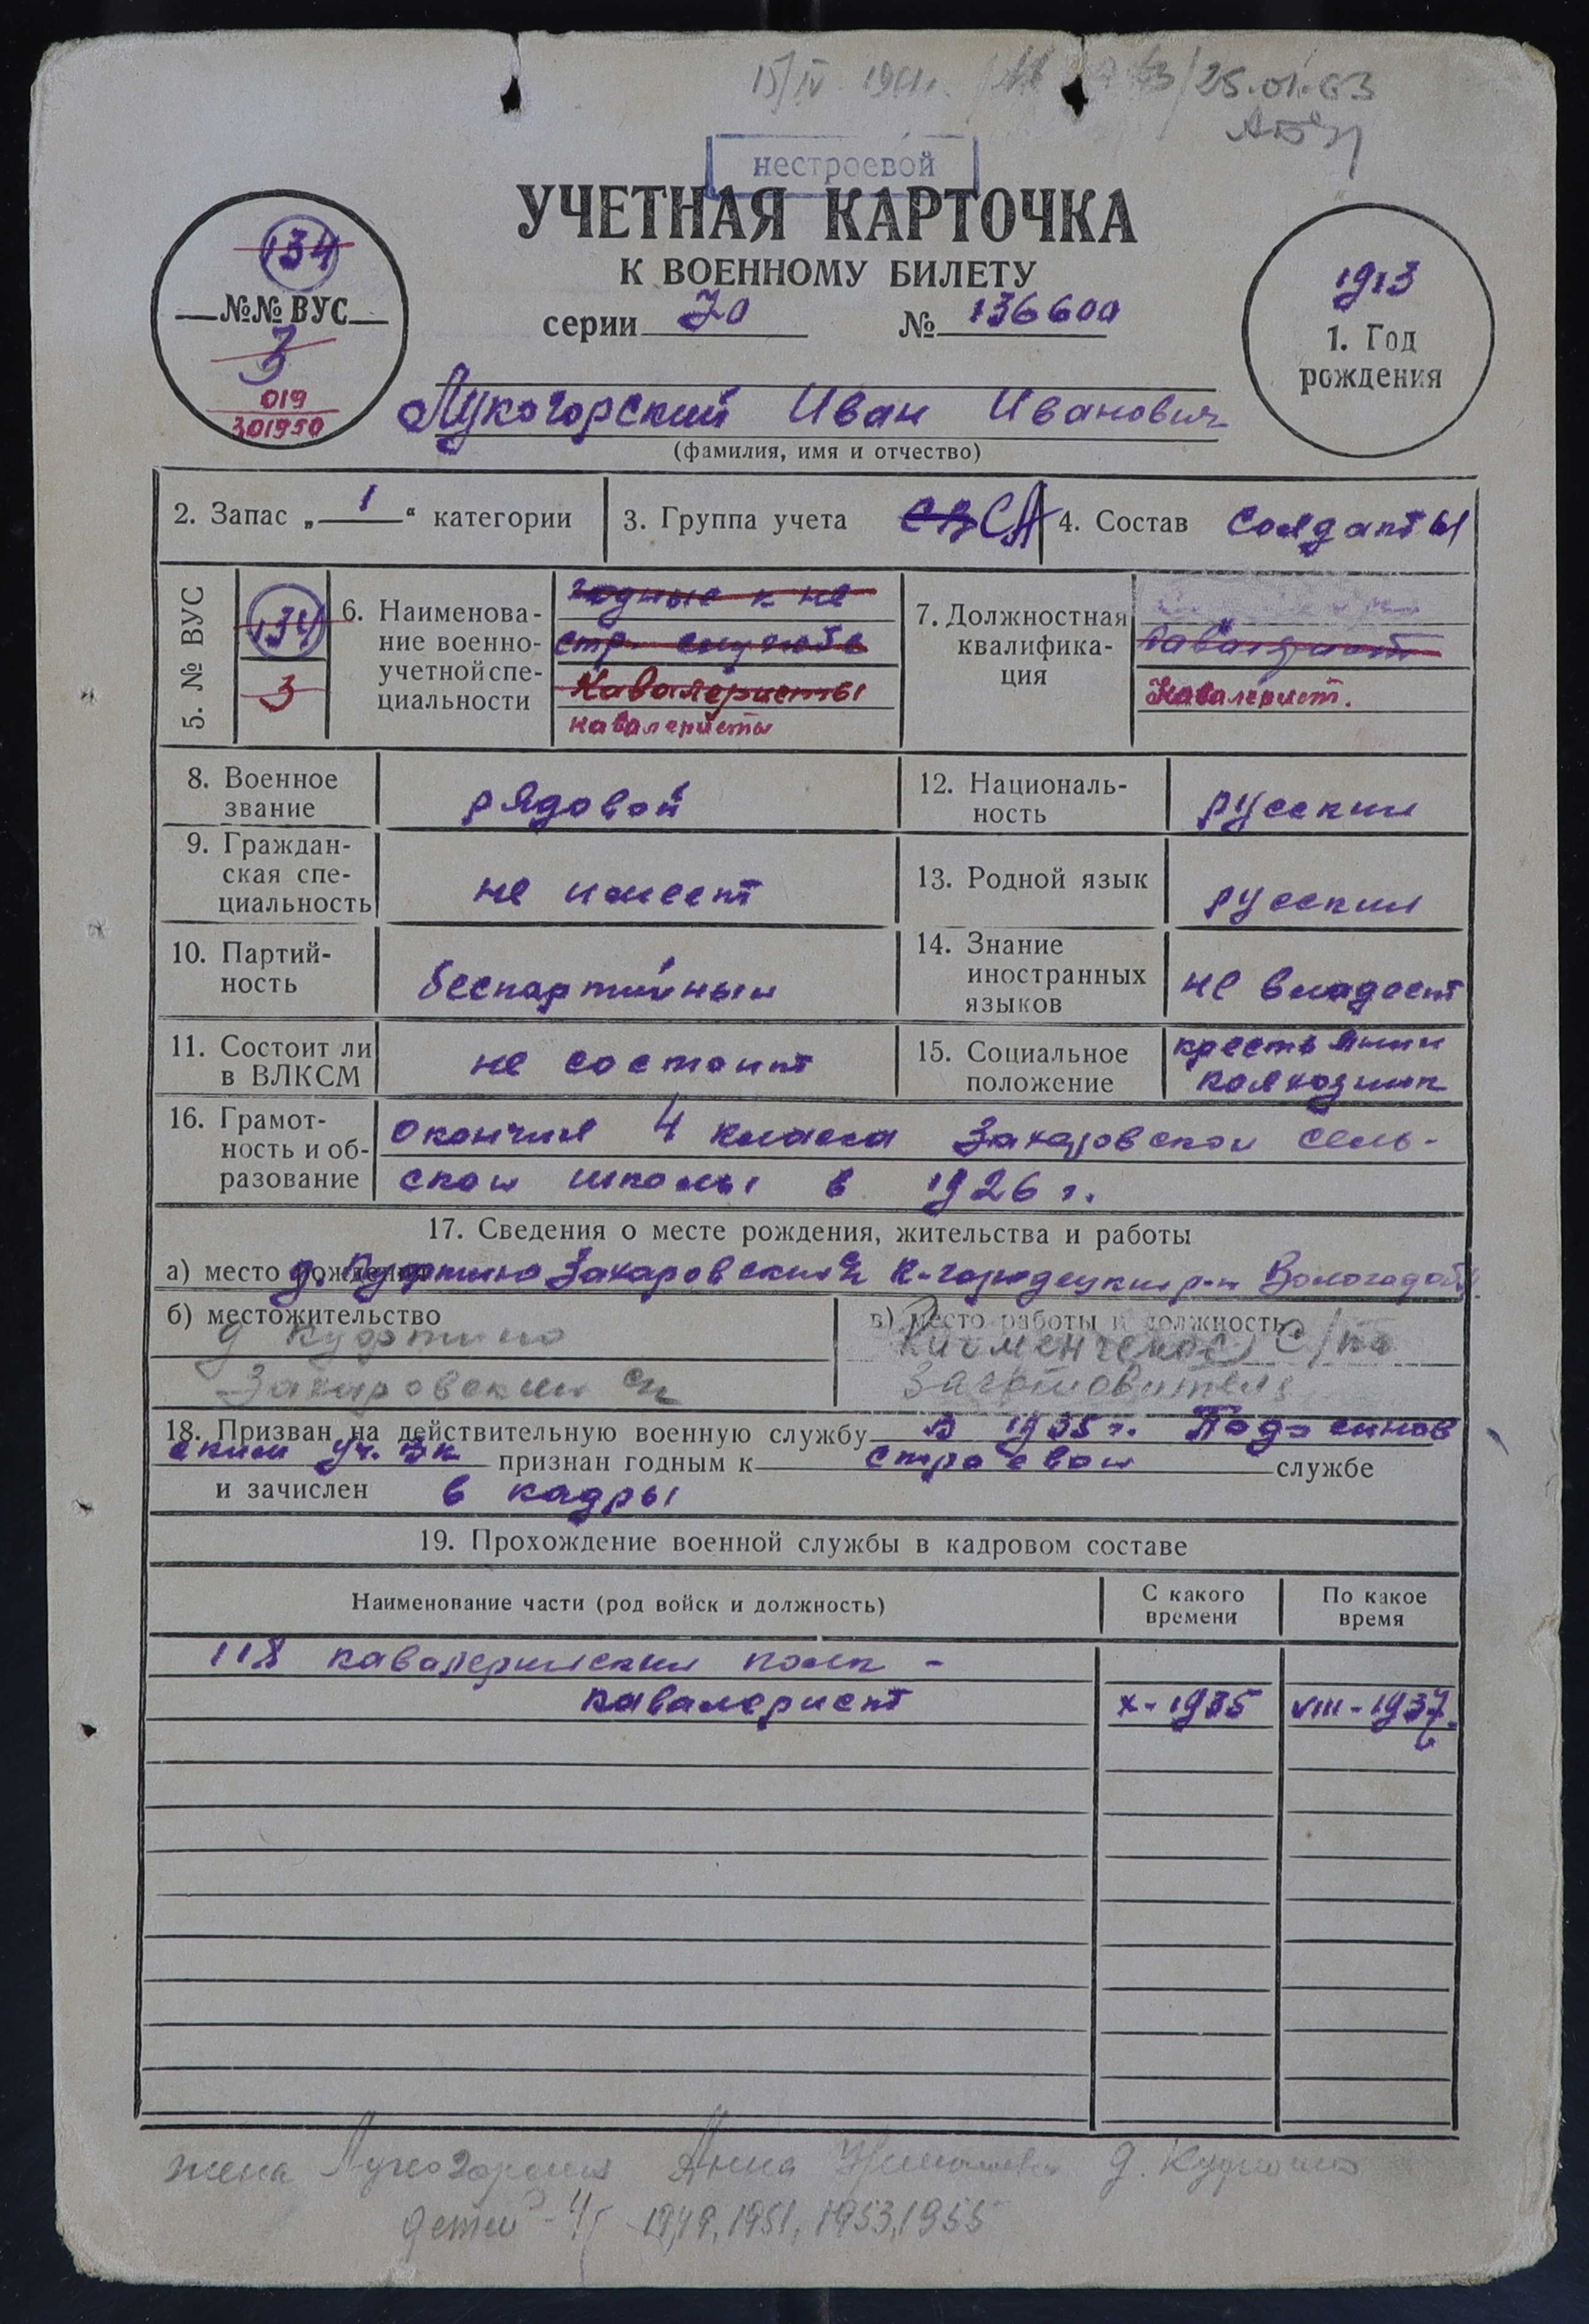 15/IV 1961г. 25.01.63
нестроевой
УЧЕТНАЯ КАРТОЧКА
К ВОЕННОМУ БИЛЕТУ
серии № 136600
134
№№ ВУС
3
019
301950
1913
1. Год
рождения
Лукогорский Иван Иванович
(фамилия, имя и отчество)
2. Запас „ 1 “ категории
3. Группа учета СА
4. Состав солдаты
5. № ВУС
134
3
6. Наименова-
ние военно-
учетной спе-
циальности
годные к не
стр. службе
Кавалеристы
кавалеристы
7. Должностная
квалифика-
ция
Кавалерист.
8. Военное
звание
рядовой
12. Националь-
ность
русский
9. Граждан-
ская спе-
циальность
не имеет
13. Родной язык
русский
10. Партий-
ность
беспартийный
14. Знание
иностранных
языков
не владеет
11. Состоит ли
в ВЛКСМ
не состоит
15. Социальное
положение
крестьянин
колхозник
16. Грамот-
ность и об-
разование
окончил 4 класса Захаровской сель-
ской школы в 1926 г.
17. Сведения о месте рождения, жительства и работы
а) место рождения д. Захаровский К-городецкий р-н Вологод. обл.
б) местожительство
д
Захаровский с/с
в) место работы и должность
Кичменгское с/по
Заготовитель
18. Призван на действительную военную службу в 1935 г. Подосинов
ским уч. вк признан годным к строевой службе
и зачислен в кадры
19. Прохождение военной службы в кадровом составе
Наименование части (род войск и должность)
С какого
времени
По какое
время
118 кавалерийский полк -
кавалерист х-1935 VIII-1937.
жена Лукогорская Анна д.
детей - 4 1949, 1951, 1953, 1955